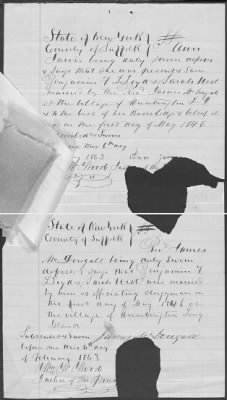 State of New York
County of Suffolk } ss Ann
Jarvis being duly sworn deposes
& says that she was present & saw
Benjamin T. Lloyd & Sarah West
married by the Rev James McDougall
at the Village of Huntington L I
& to the best of her knowledge & belief it
was on the first day of May 1846
& Sworn
me this 6th day
1863
W. Wood
State of New York
County of Suffolk } ss James
McDougall being duly sworn
deposes & says that Benjamin T.
Lloyd & Sarah West were married
by him as officiating clergyman on
the first day of May 1846 at
the village of Huntington Long
Island
Subscribed & sworn James McDougall
before me this 6th day
of February 1863
W. Wood
Justice of the Peace